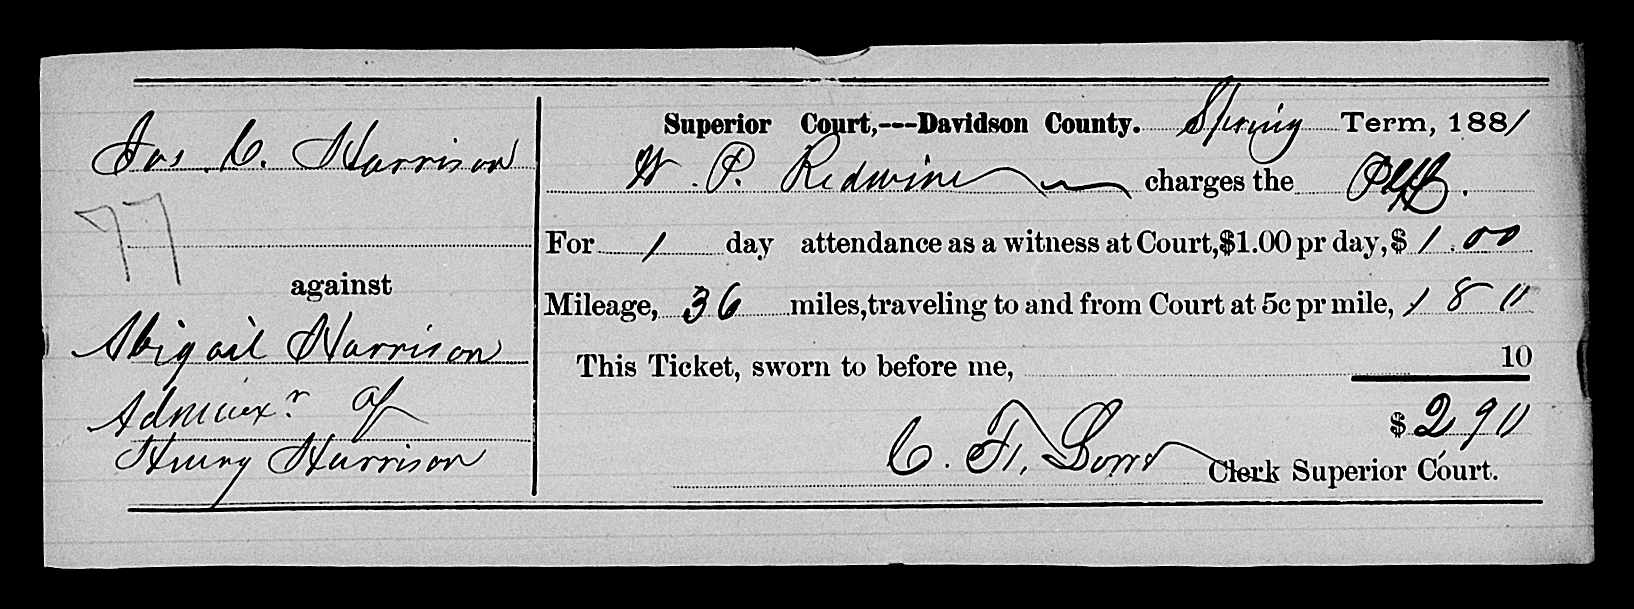 Jas. C. Harrison
77
against
Abigail Harrison
Adminx.r of
Henry Harrison
Superior Court,---Davidson County. Spring Term, 1881
W. P. Redwine charges the Plff.
For 1 day attendance as a witness at Court,$1.00 pr day,$ 1.00
Mileage, 36 miles,traveling to and from Court at 5c pr mile, 1 80
This Ticket, sworn to before me, 10
$ 2,90
C. F. Lowe Clerk Superior Court.